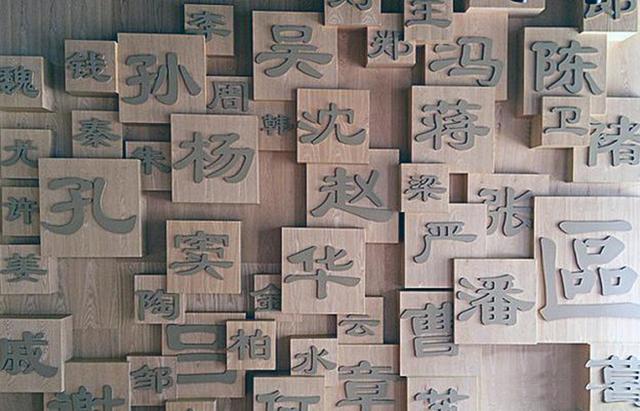 李
吴
郑
冯
陈
魏
钱
孙
周
韩
沈
蒋
卫
褚
尤
秦
朱
杨
赵
梁
许
孔
严
张
區
姜
窦
华
陶
金
云
曹
潘
戚
邹
吕
柏
水
章
葛
谢
何
苏